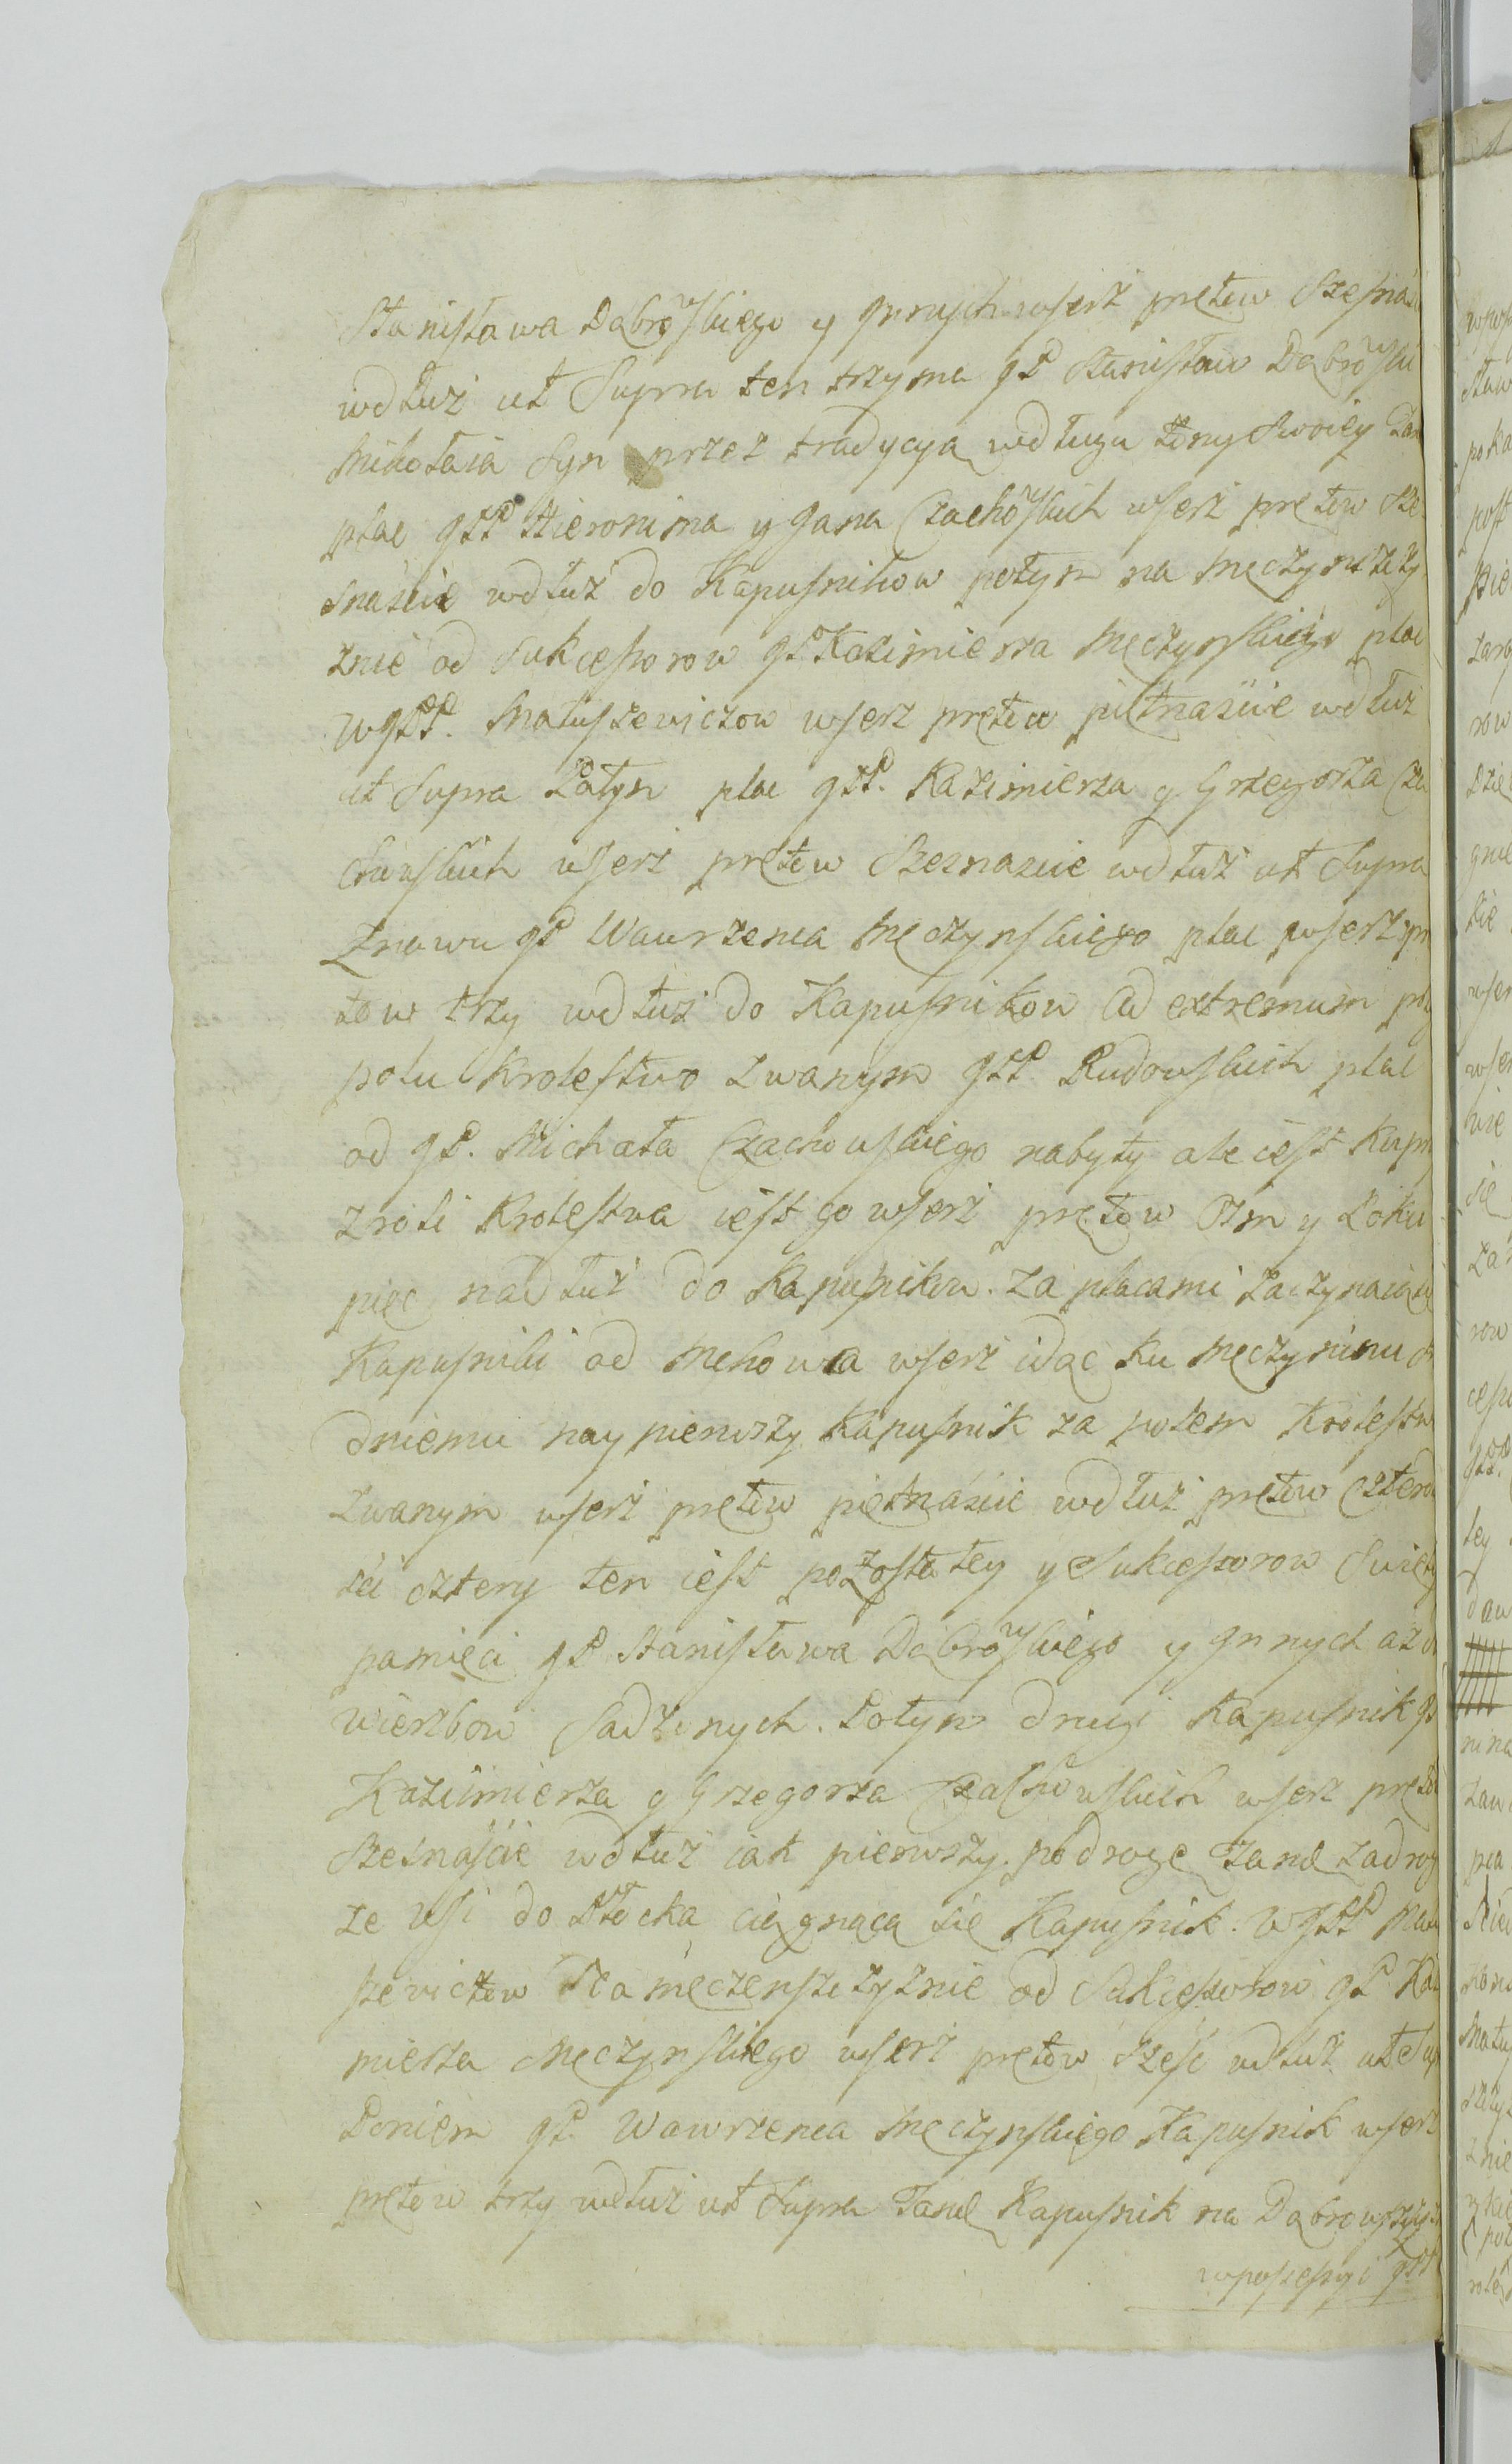 Stanisława Dąbrowskiego y Jnnych wserz prętow Szesna
wdłuż ut Supra ten trzyma JP Stanisław Dąbrowski
Mikołaia Syn przez tradycyą wdługu żony Swoiey
plac JPP Hieronima y Jana Czachowskich wserz prętow Sze
snascie wdłuż do Kapusnikow potym na Męczynszczy
znie od Sukcessorow JP Kazimierza Męczynskiego plac
WJPP. Matuszewiczow wserz prętow pietnascie wdłuż
ut Supra Potym plac JPP. Kazimierza y Grzegorza Cza
chowskich wserz prętow Szesnascie wdłuż ut Supra
Znowu JP Wawrzenca Męczynskiego plac wserz prę
tow trzy wdłuż do Kapusnikow Ad extremum
polu Krolestwo zwanym JPP Rudowskich plac
od JP. Michała Czachowskiego nabyty ale iest
z roli Krolestwa iest go wserz prętow Osm y Łokci
pięc nadłuż do Kapusnikow. Za placami zaczynaią się
Kapusniki od Mchowa wserz idąc ku Męczyninu
dniemu naypierwszy Kapusnik za polem Krolestw
zwanym wserz prętow pietnáscie wdłuż prętow Cztero
sci cztery ten iest pozostałey y Sukcessorow Swięty
pamięci JP Stanisława Dąbrowskiego y Jnnych aż do
wierzbow Sadzonych. Potym drugi Kapusnik JP
Kaziimierza y Grzegorza Czachowskich wserz pręto
Szesnascie wdłuż iak pierwszy. po drogę Zaraz zadrog
ze wsi do Płocka ciągnącą się Kapusnik. WJPP Matu
szewiczow na Męczenszczyznie od Sukcessorow JP Kazi
mierza Męczynskiego wserz prętow szesc wdłuż ut Sup
Poniem JP. Wawrzenca Męczynskiego Kapusnik wserz
prętow trzy wdłuż ut Supra Kapusnik na Dąbrowszczy
wpossessyi JPP